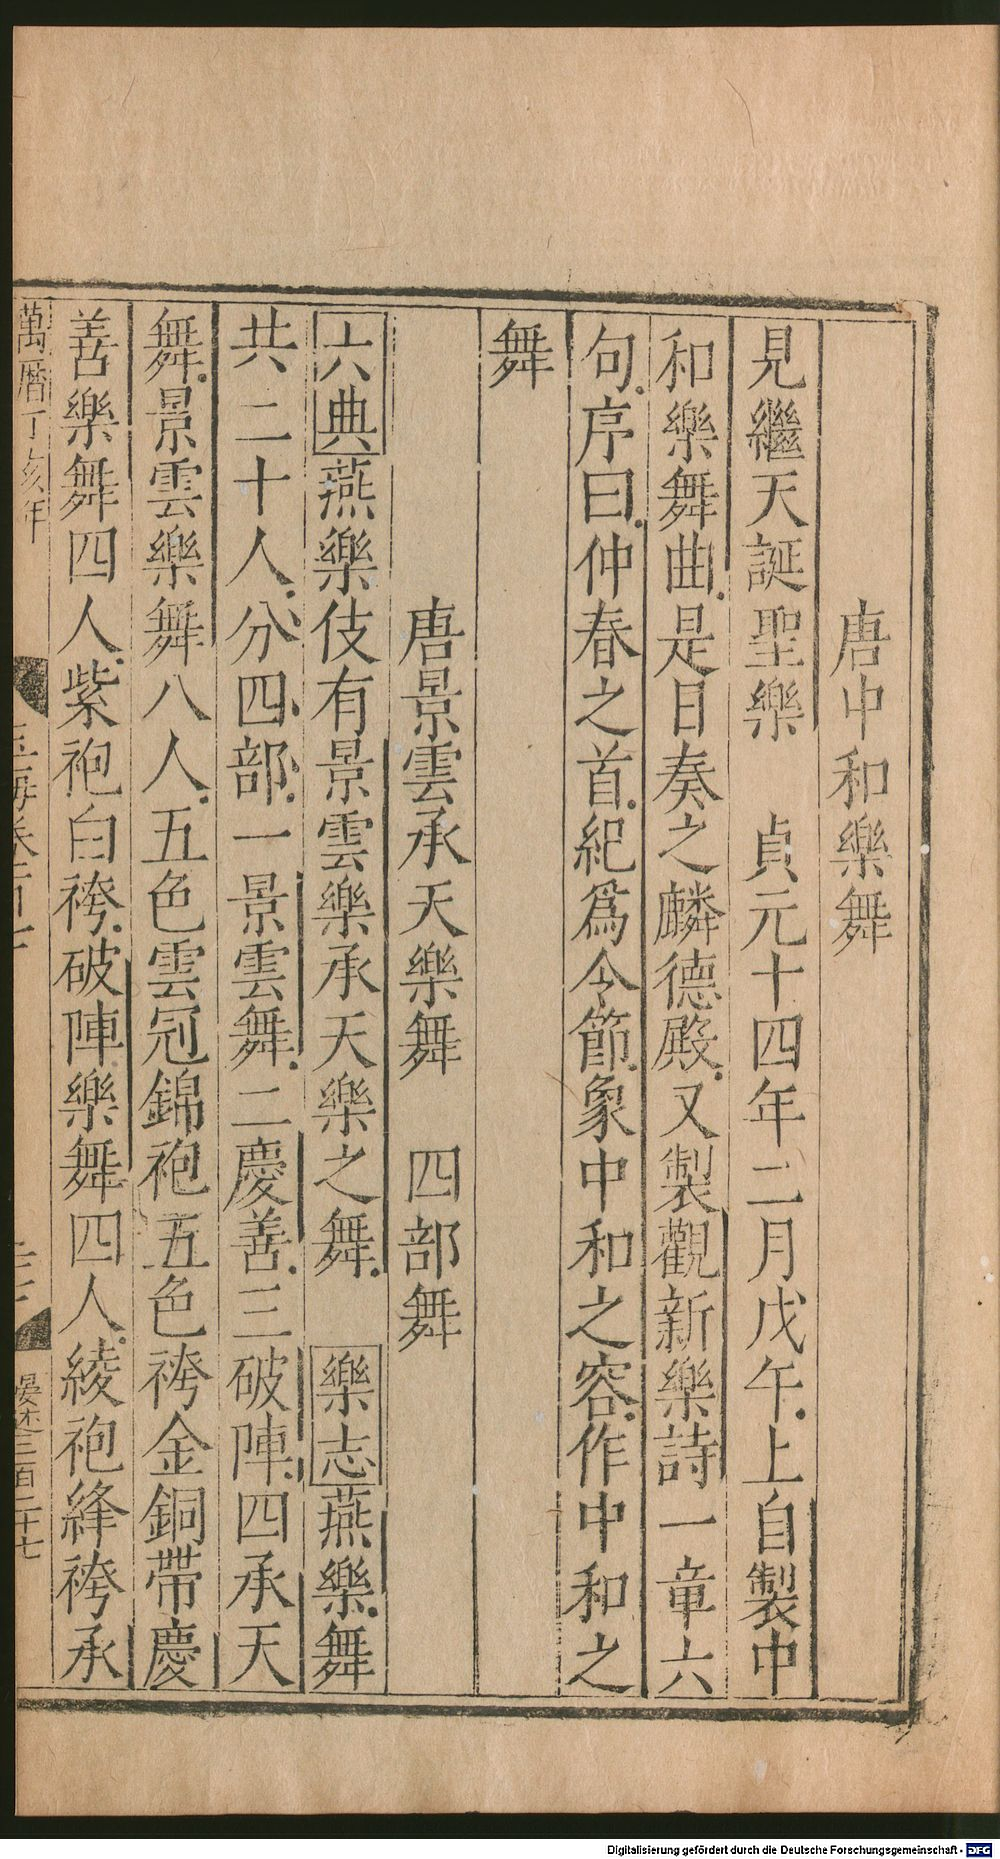 唐中和樂舞
見繼天誕聖樂　貞元十四年二月戊午上自製中
和樂舞曲是日奏之麟德殿又製觀新樂詩一章六
句序曰仲春之首紀爲令節象中和之容作中和之
舞
唐景雲承天樂舞　四部舞
六典燕樂伎有景雲樂承天樂之舞　樂志燕樂舞
共二十人分四部一景雲舞二慶善三破陣四承天
舞景雲樂舞八人五色雲冠錦袍五色袴金銅帶慶
善樂舞四人紫袍白袴破陣樂舞四人綾袍絳袴承
萬曆丁亥年
玉海卷百七
晏述三百二十七
Digitalisierung gefördert durch die Deutsche Forschungsgemeinschaft - DFG